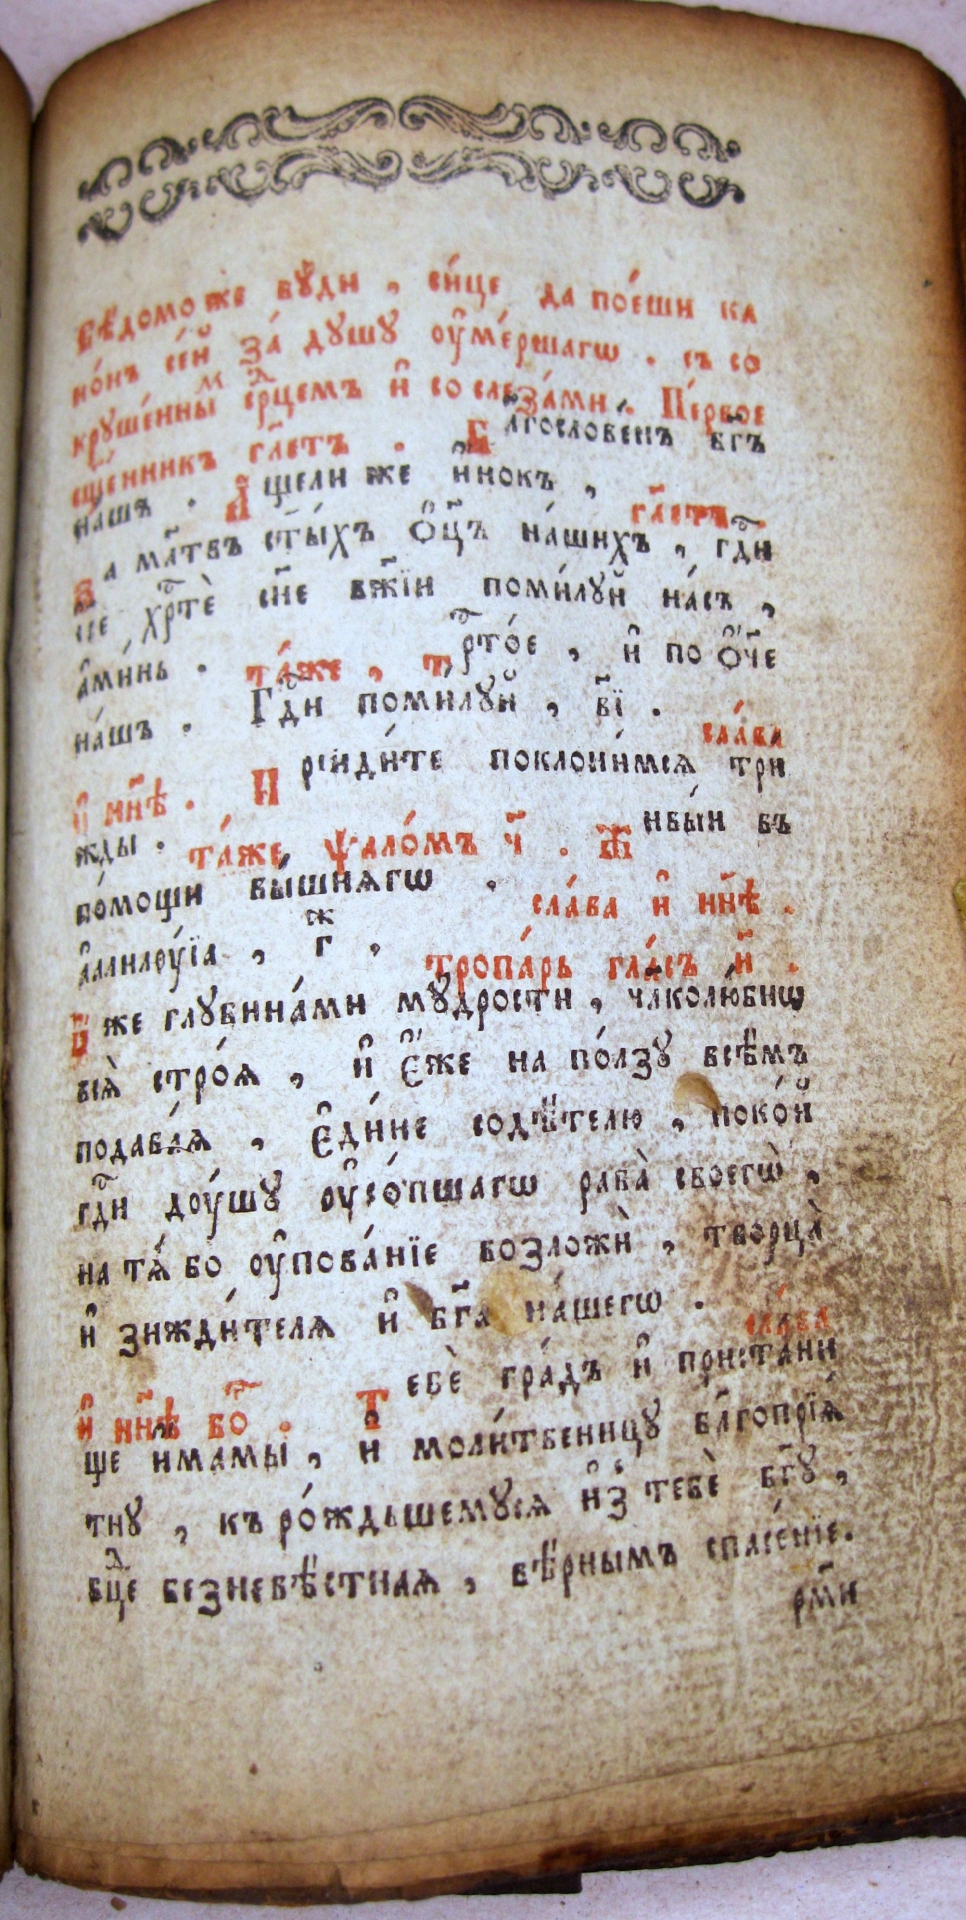 вѣ́домо же бꙋ́ди , си́це да пое́ши ка
но́нъ се́й за́ дꙋшꙋ ᲂу҆ме́ршагѡ . съ со
крꙋше́нны́мъ се́рдцемъ и҆ со слеза́ми . Пе́рвое
сщ҃е́нникъ гл҃етъ . Бл҃гослове́нъ бг҃ъ
на́шъ . А҆щели же и҆́нокъ , гл҃етъ .
За мл҃твъ ст҃ы́хъ ѻ҆ц҃ъ на́шихъ , гдⷭ҇и
і҆с҃е хрⷭ҇тѐ сн҃е бж҃їи поми́лꙋй на́съ ,
а҆ми́нь . та́же , трⷭ҇то́е , и҆ по ѻ҆́ч҃е
на́шъ . Гдⷭ҇и поми́лꙋй , в҃і . сла́ва
и҆ нн҃ѣ . Прїиди́те поклони́мсѧ три
жды . та́же ѱало́мъ ч҃ . Живы́и въ
по́мощи вы́шнѧгѡ . сла́ва и҆ нн҃ѣ .
а҆ллилꙋ́їа , гⷤ , тропа́рь гла́съ и҃ .
Бж҃е глꙋбина́ми мꙋ́дрости , чл҃колю́бнѡ
всѧ̀ стро́ѧ , и҆ є҆́же на по́лзꙋ всѣ́мъ
подава́ѧ , є҆ди́не содѣ́телю , поко́й
гдⷭ҇и дꙋ́шꙋ ᲂу҆со́пшагѡ раба̀ своегѡ̀ ,
на тѧ́ бо ᲂу҆пова́нїе возложѝ , творца̀
и҆ зижди́телѧ и҆ бг҃а на́шегѡ . сла́ва
и҆ нн҃ѣ бо҃ . Тебѐ гра́дъ и҆ приста́ни
ще и҆́мамы , и҆ моли́твенницꙋ бл҃гопрїѧ́
тнꙋ , къ ро́ждьшемꙋсѧ и҆з̾ тебѐ бг҃ꙋ ,
бцⷣе безневѣ́стнаѧ , вѣ́рнымъ спасе́нїе .
рм҃и